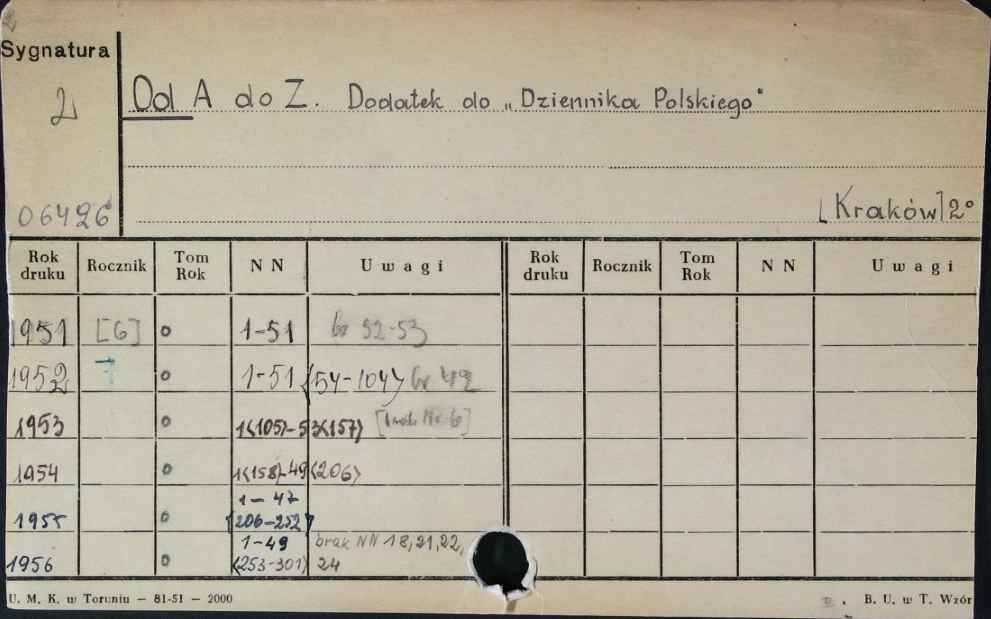 Sygnatura
Od A do Z. Dodatek do „Dziennika Polskiego"
06426
[Kraków] 2°
Rok druku Rocznik Tom Rok NN Uwagi Rok druku Rocznik Tom Rok NN Uwagi
1951 [6] o 1-51 br 52-53
1952 7 o 1-51 <54-104> br 42
1953 o 1<105>-53<157>
1954 o 1<158>-49<206>
1955 o 1-47 <206-252>
1956 o 1-49 <253-301> brak NN 18,21,22, 24
U. M. K. w Toruniu — 81-51 — 2000
B. U. w T. Wzór